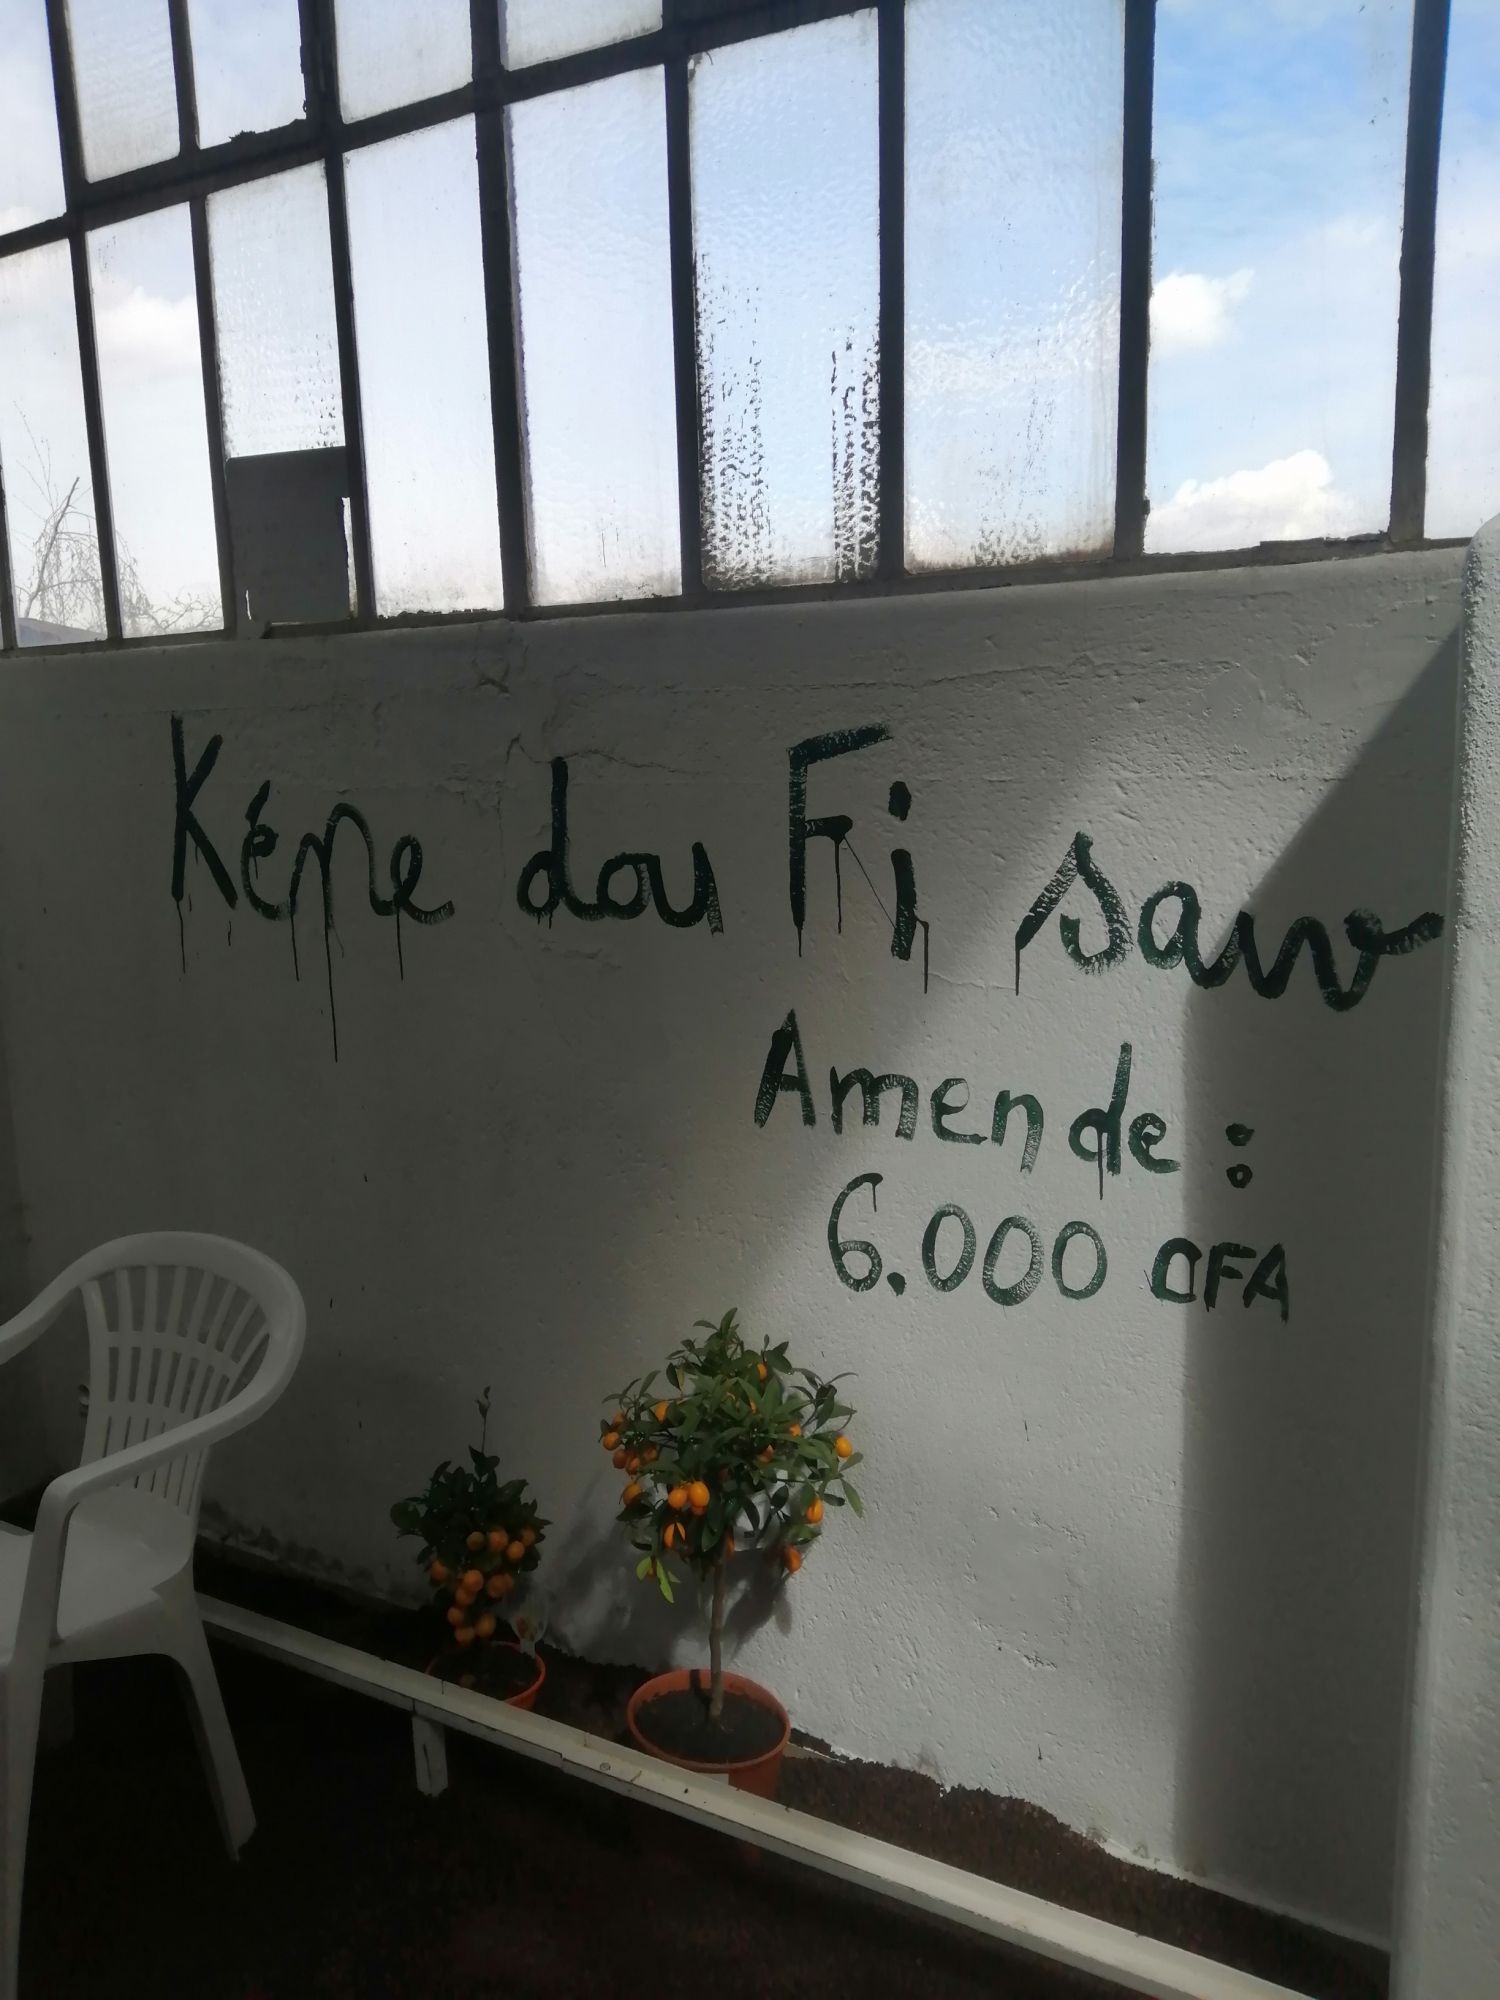 Kéne dou Fi saw
Amende :
6.000 CFA